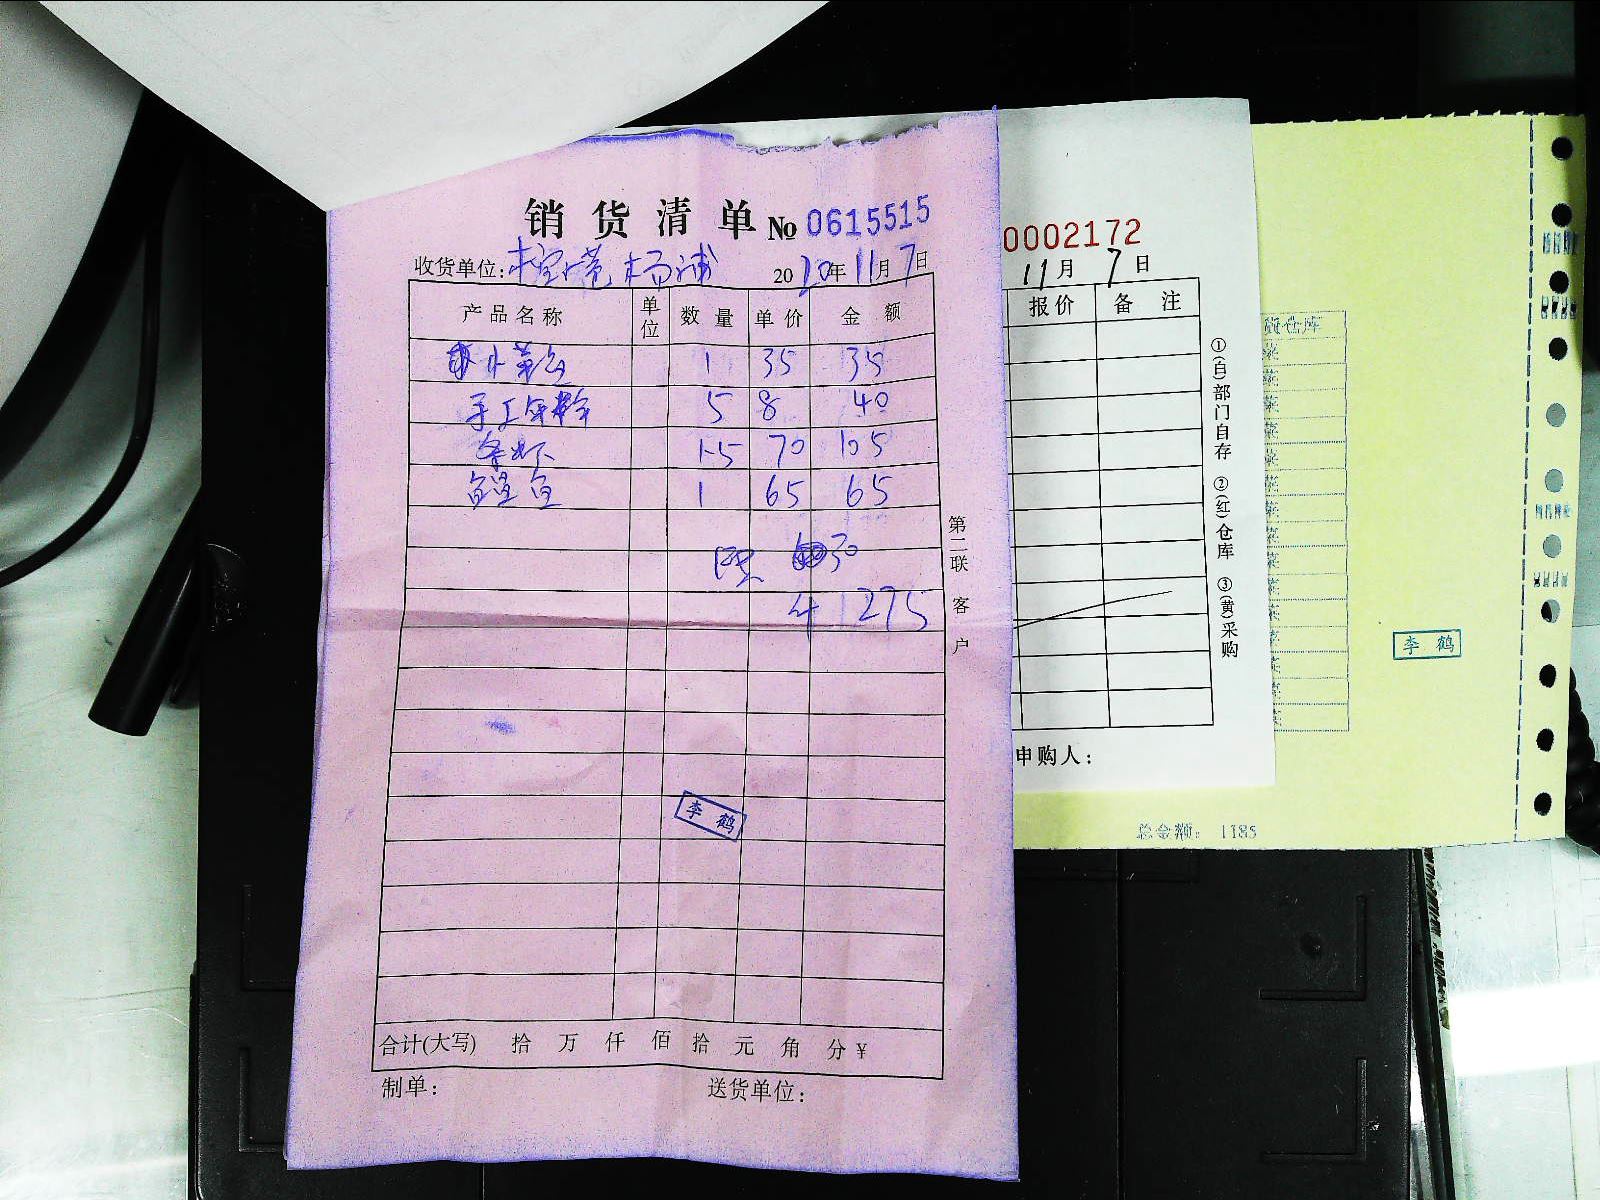 销货清单 № 0615515
收货单位: 杨浦 2020年11月7日
产品名称 单位 数量 单价 金额
小黄鱼 1 35 35
手工年糕 5 8 40
条虾 1.5 70 105
鳗鱼 1 65 65
30
计 275
第二联 客户
李鹤
合计(大写) 拾 万 仟 佰 拾 元 角 分 ¥
制单:
送货单位:
0002172
11月7日
报价 备注
①(白)部门自存 ②(红)仓库 ③(黄)采购
申购人:
仓库
菜
李鹤
总金额: 1185